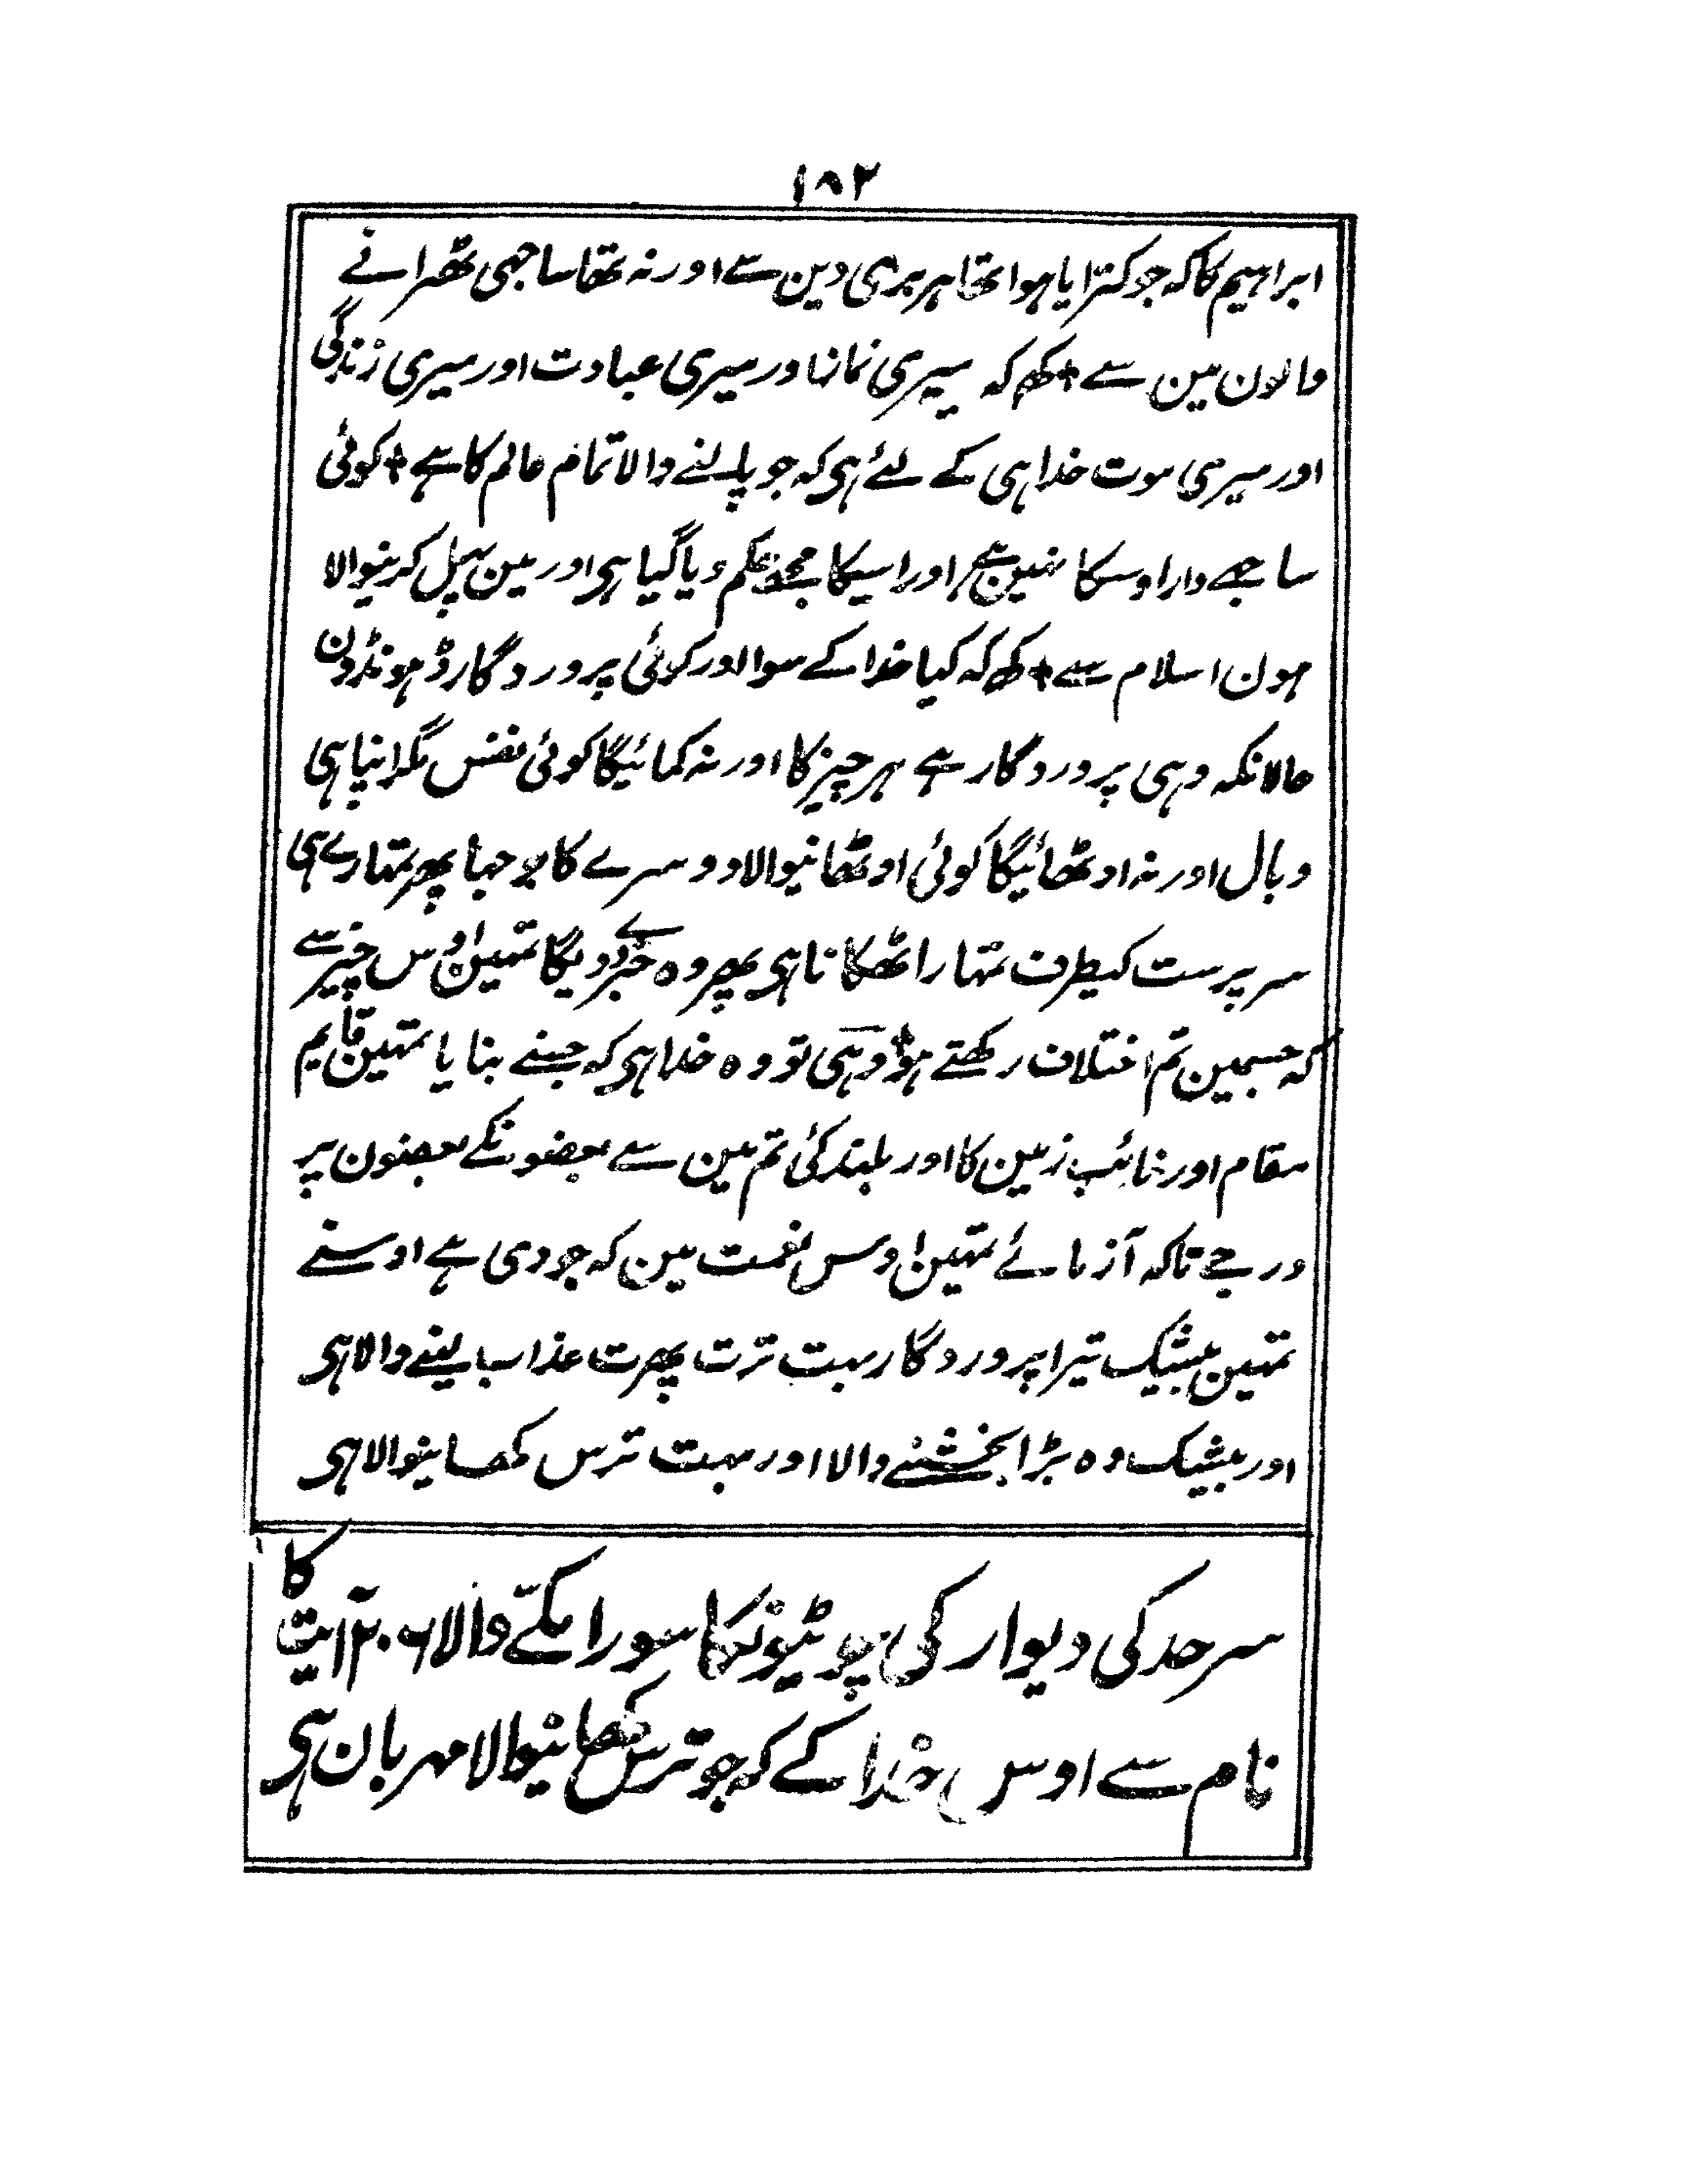 ۱۸۲
ابراہیم کا کہ جو کترایا ہوا تھا ہر بری دین سے اور نہ تھا ساجھی ٹھرانے
والون مین سے + کھ کہ میری نماز اور میری عبادت اور میری زندگی
اور میری موت خدا ہی کے لئے ہی کہ جو پالنے والا تمام عالم کا ہے + کوئی
ساجھے دار اوسکا نہین ہے اور اسیکا مجھے حکم دیا گیا ہی اور مین پہل کرنیوالا
ہون اسلام سے + کھ کہ کیا خدا کے سوا اور کوئی پروردگار ڈھونڈون
حالانکہ وہی پروردگار ہے ہر چیز کا اور نہ کمائیگا کوئی نفس مگر اپنا ہی
وبال اور نہ اوٹھائیگا کوئی اوٹھانیوالا دوسرے کا بوجھا پھر تمہارے ہی
سرپرست کیطرف تمہارا ٹھکانا ہی پھر وہ خبر دے دیگا تمہین اوس چیز سے
کہ جسمین تم اختلاف رکھتے ہو + وہی تو وہ خدا ہی کہ جسنے بنایا تمہین قایم
مقام اور نائب زمین کا اور بلند کئی تم مین سے بعضونکے بعضون پر
درجے تاکہ آزمائے تمہین اوس نعمت مین کہ جو دی ہے اوسنے
تمہین بیشک تیرا پروردگار بہت ترت پھرت عذاب لینے والا ہی
اور بیشک وہ بڑا بخشنے والا اور بہت ترس کھانیوالا ہی
سرحد کی دیوار کی چوٹیونکا سورا مکّے والا ۲۰۶ آیت کا
نام سے اوس خدا کے کہ جو ترس کھانیوالا مہربان ہی